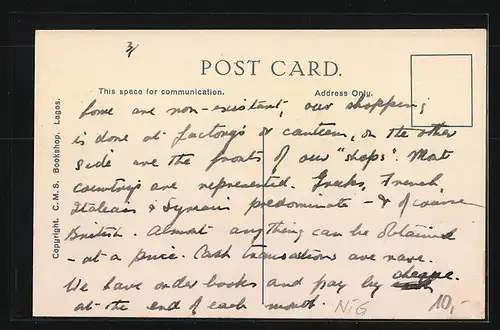 3/
POST CARD.
This space for communication.
Address Only.
Copyright. C. M. S. Bookshop. Lagos.
are non-existent, our shopping
is done at factory's or canteen, on the other
side are the fronts of our "shops". Most
countrys are represented. Greeks, French,
Italians & Syrians predominate - & of course
British. Almost anything can be obtained
- at a price. Cash transactions are rare.
We have order books and pay by cheque
at the end of each month.
NIG
10,-